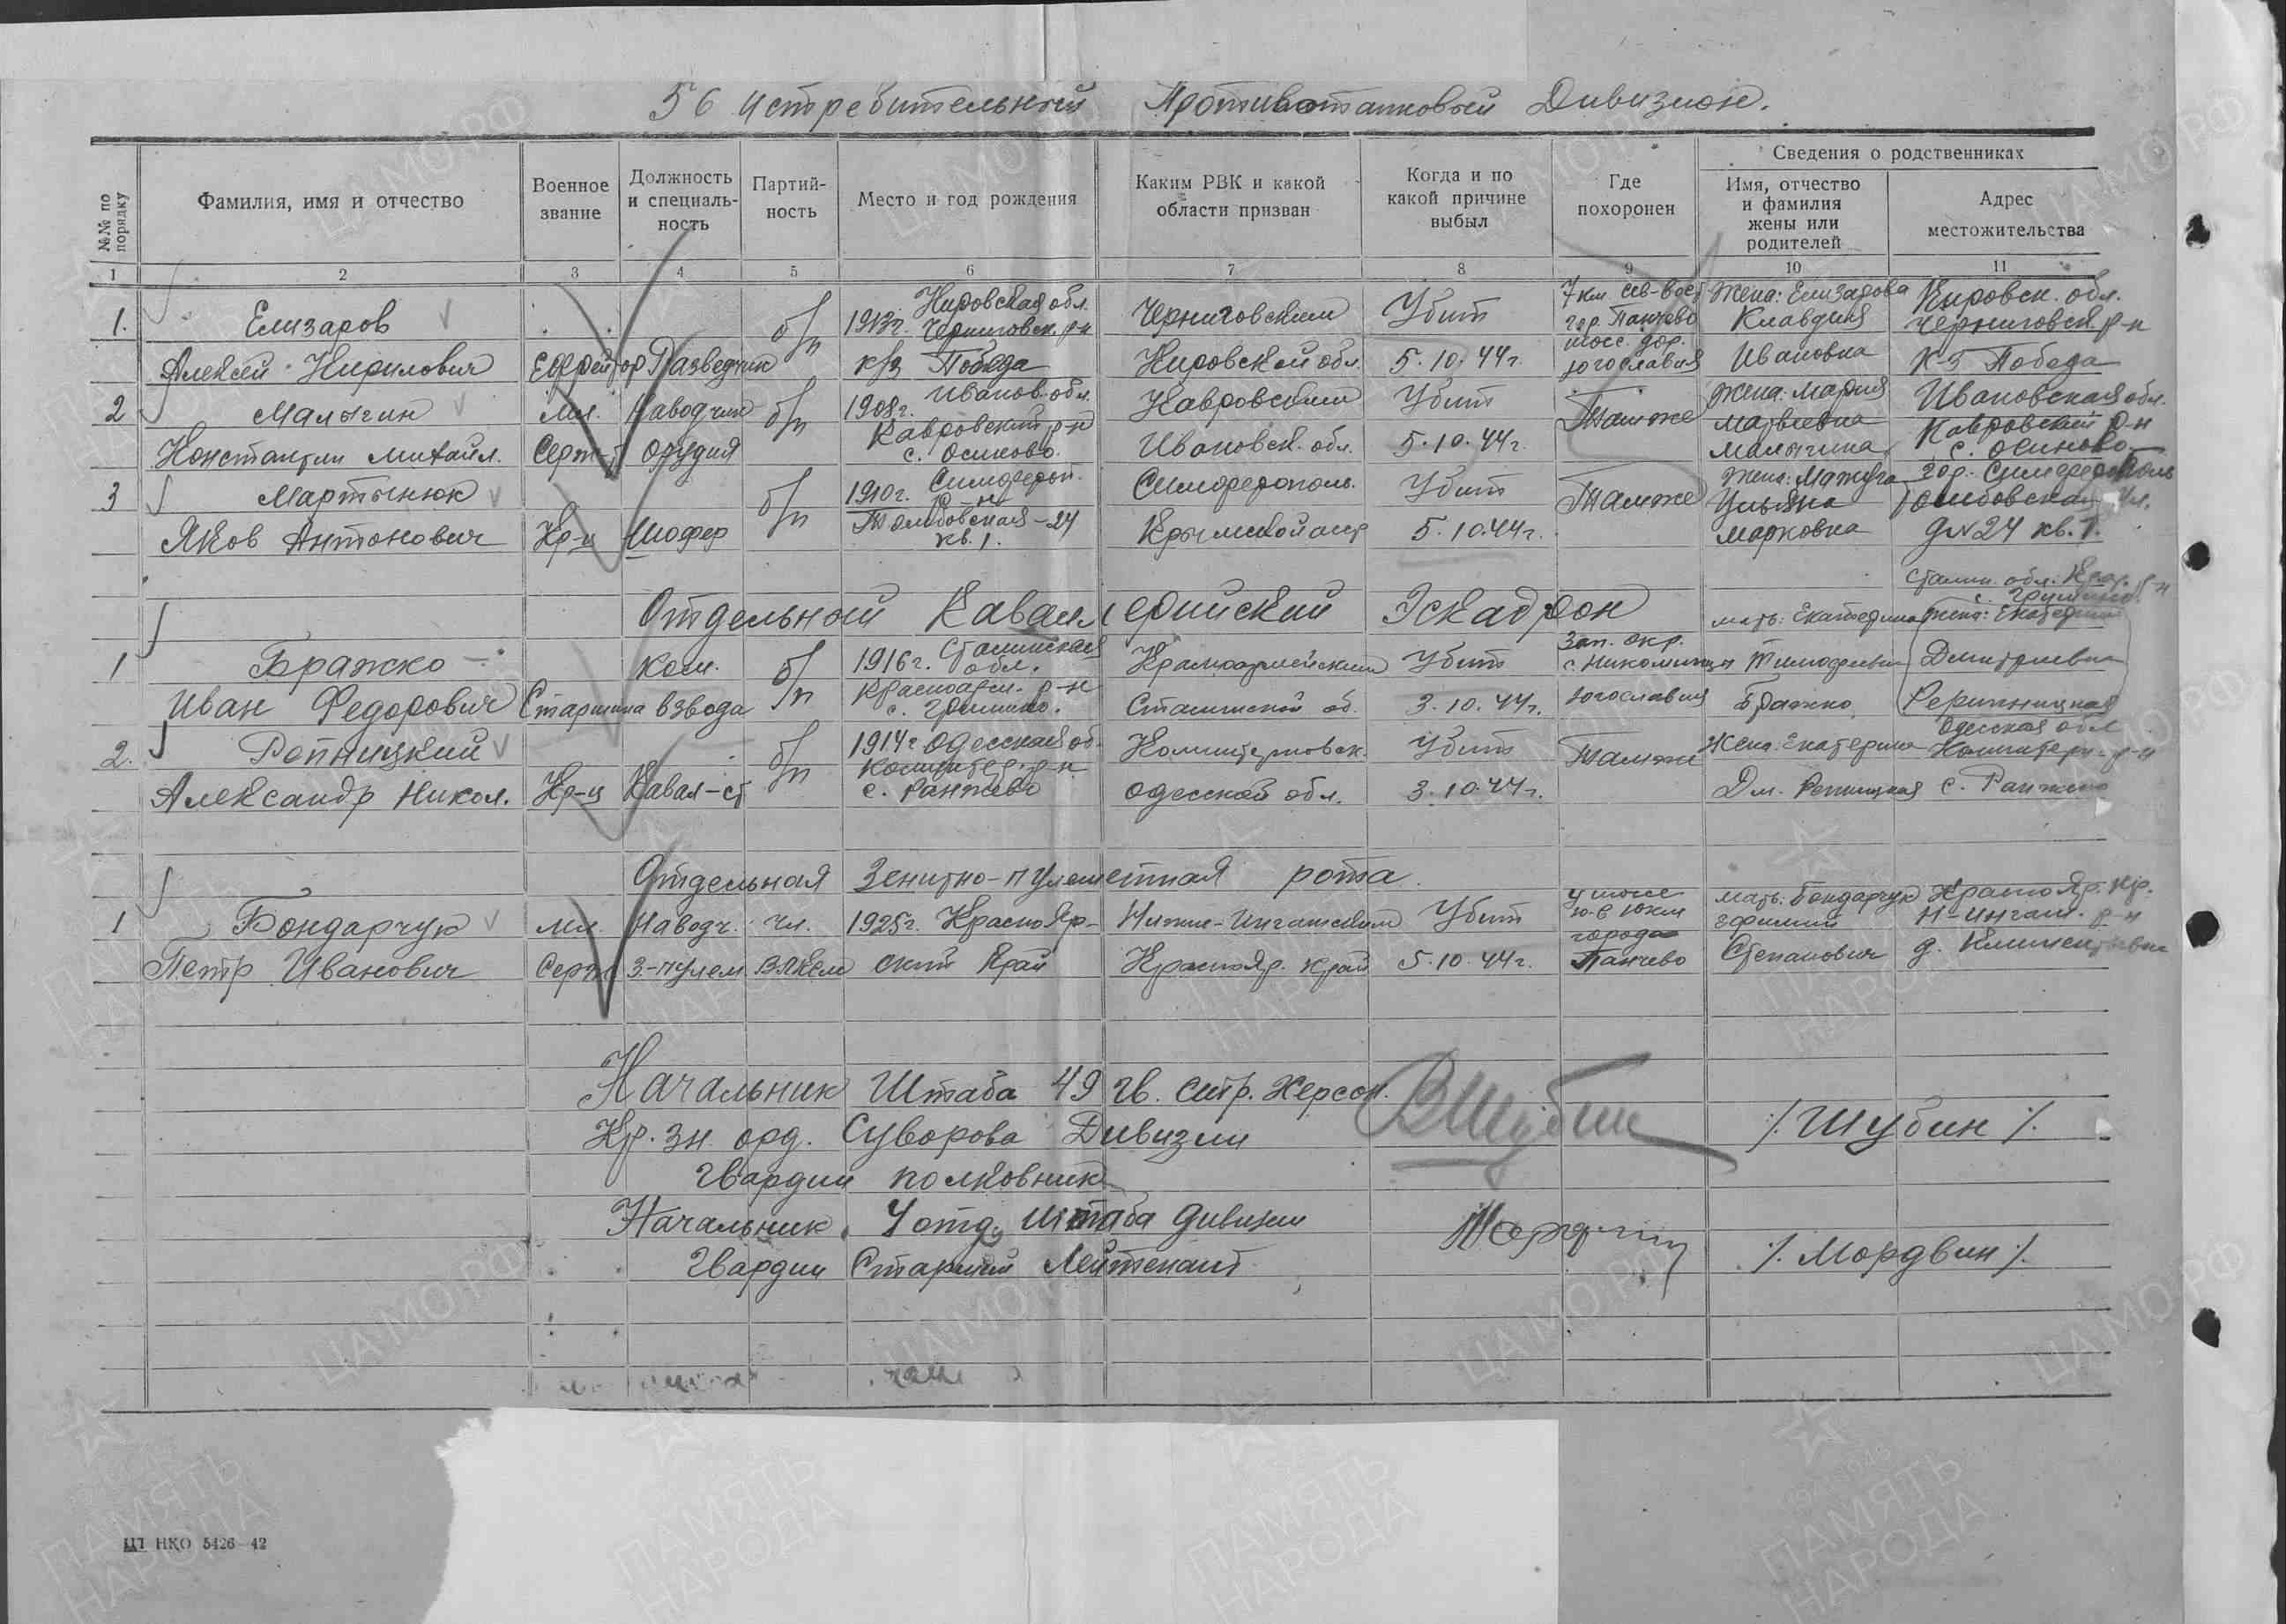 56 Истребительный Противотанковый Дивизион.
№№ по порядку
Фамилия, имя и отчество
Военное звание
Должность и специаль-ность
Партий-ность
Место и год рождения
Каким РВК и какой области призван
Когда и по какой причине выбыл
Где похоронен
Сведения о родственниках
Имя, отчество и фамилия жены или родителей
Адрес местожительства
1 2 3 4 5 6 7 8 9 10 11
1. Елизаров б/п 1913г. Кировская обл. Черниговск. р-н Черниговским Убит 7 км сев-вост гор. Панчево Жена: Елизарова Клавдия Кировск. обл. Черниговск. р-н
Алексей Кирилович Ефрейтор Разведчик к/з Победа Кировской обл. 5.10.44г. шосс. дор. Югославия Ивановна К-з Победа
2 Малыгин Мл. Наводчик б/п 1908г. Иванов. обл. Кавровским Убит Там же Жена: Мария Матвеевна Ивановская обл.
Константин Михайл. Серж-т Орудия Кавровский р-н с. Осиново. Ивановск. обл. 5.10.44г. Малыгина Кавровский р-н с. Осиново
3 Мартынюк б/п 1910г. Симфероп. р-н Симферополь. Убит Там же Жена: Ульяна гор. Симферополь
Яков Антонович Кр-ц Шофер 24 кв. 1. Крымской 5.10.44г. Марковна д№24 кв. 1.
Отдельный Кавалерийский Эскадрон
Сталин. обл. Кр. р-н с. Гришино
мать: Екатерина Жена: Екатерина
1 Бражко Ком. б/п 1916г. Сталинская обл. Красноармейским Убит Зап. окр. Тимофеевна Дмитриевна
Иван Федорович Старшина взвода Красноарм. р-н с. Гришино. Сталинской об. 3.10.44г. Югославия Бражко Репницкая
2. Репницкий б/п 1914г Одесская об. Коминтерновск. Убит Там же Жена: Екатерина Одесская обл Коминтерн. р-н
Александр Никол. Кр-ц Кавал-ст Коминтер. р-н с. Ранжево Одесской обл. 3.10.44г. Дм. Репницкая с. Ранжево
Отдельная Зенитно-пулеметная рота
1 Бондарчук Мл. Наводч. чл. 1925г. Краснояр- Нижне-Ингашским Убит у шоссе ю-в 10км мать: Бондарчук Краснояр. кр. Н-Ингаш. р-н
Петр Иванович Серж. З-пулем ВЛКСМ ский Край Краснояр. край 5.10.44г. города Панчево Степанович
Начальник Штаба 49 гв. стр. Херсон. ВШубин
Кр. зн. орд. Суворова Дивизии /. Шубин /.
Гвардии полковник
Начальник 4 отд. штаба дивизии
Гвардии Старший Лейтенант /. Мордвин /.
ЦТ НКО 5426-42
ЦАМО.РФ
ПАМЯТЬ НАРОДА